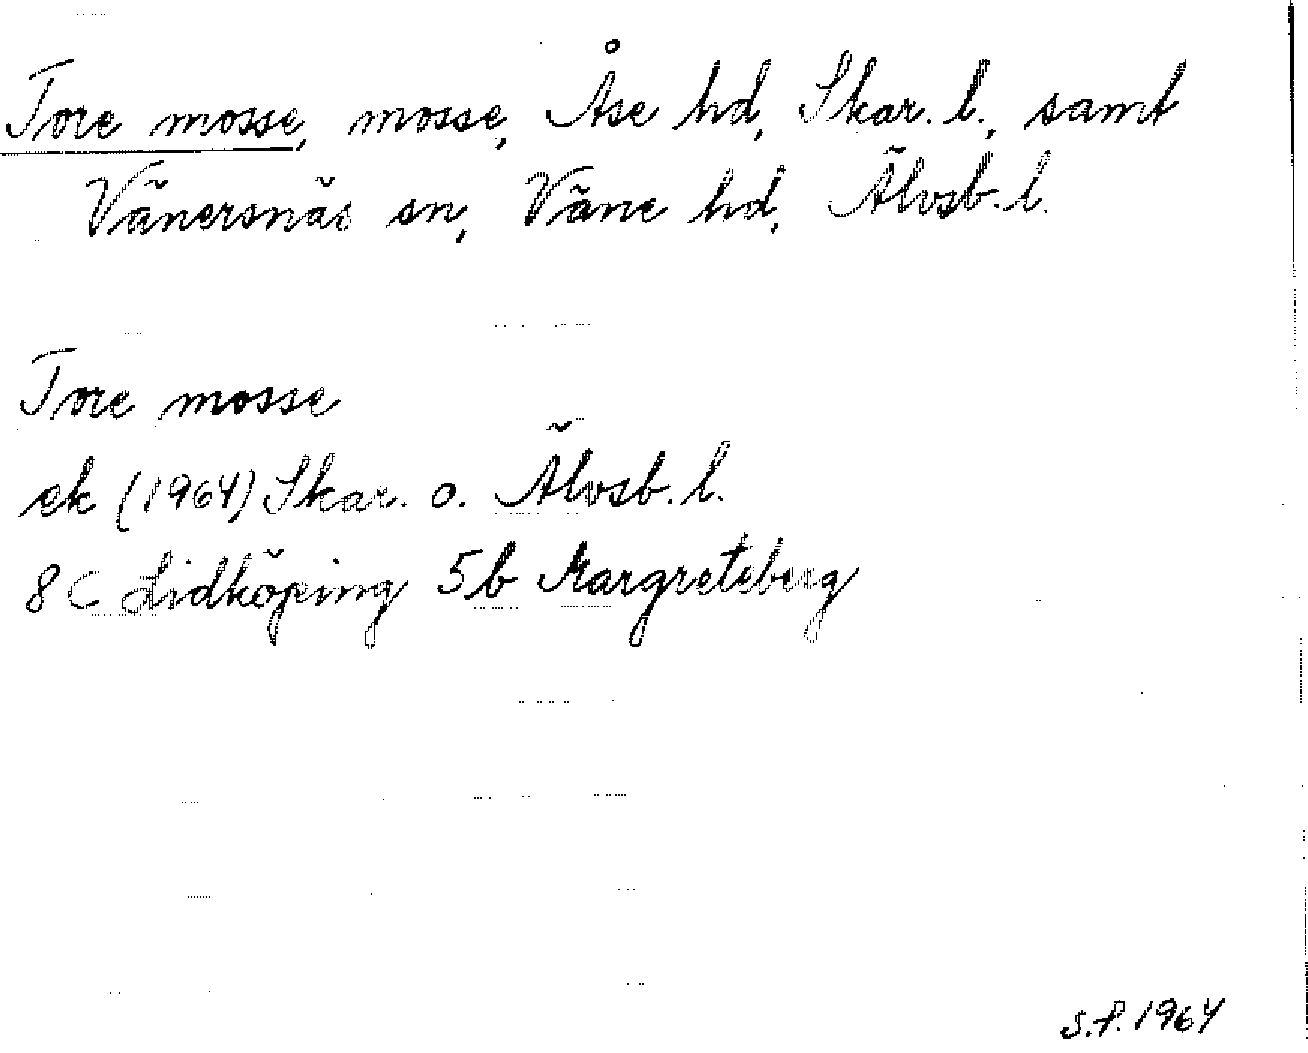 Tore mosse, mosse, Åse hd, Skar. l., samt
Vänersnäs sn, Väne hd, Älvsb. l.
Tore mosse
ek (1964) Skar. o. Älvsb. l.
8C Lidköping 5b Margreteberg
S.P. 1964